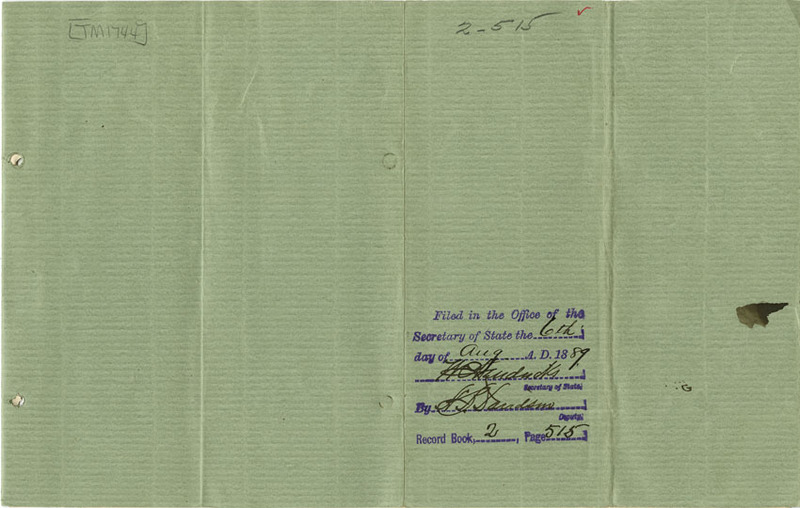 [TM1744]
2-515
Filed in the Office of the
Secretary of State the 6th
day of Aug A. D. 1889
W C Hendricks
Secretary of State,
By
Deputy.
Record Book, 2, Page 515